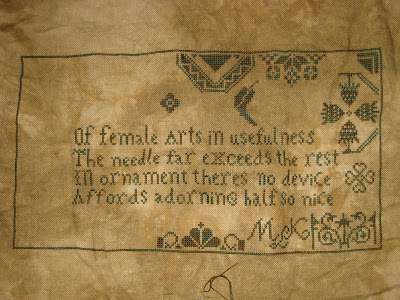 Of female Arts in usefulness
The needle far exceeds the rest
In ornament theres no device
Affords adorning half so nice
McK